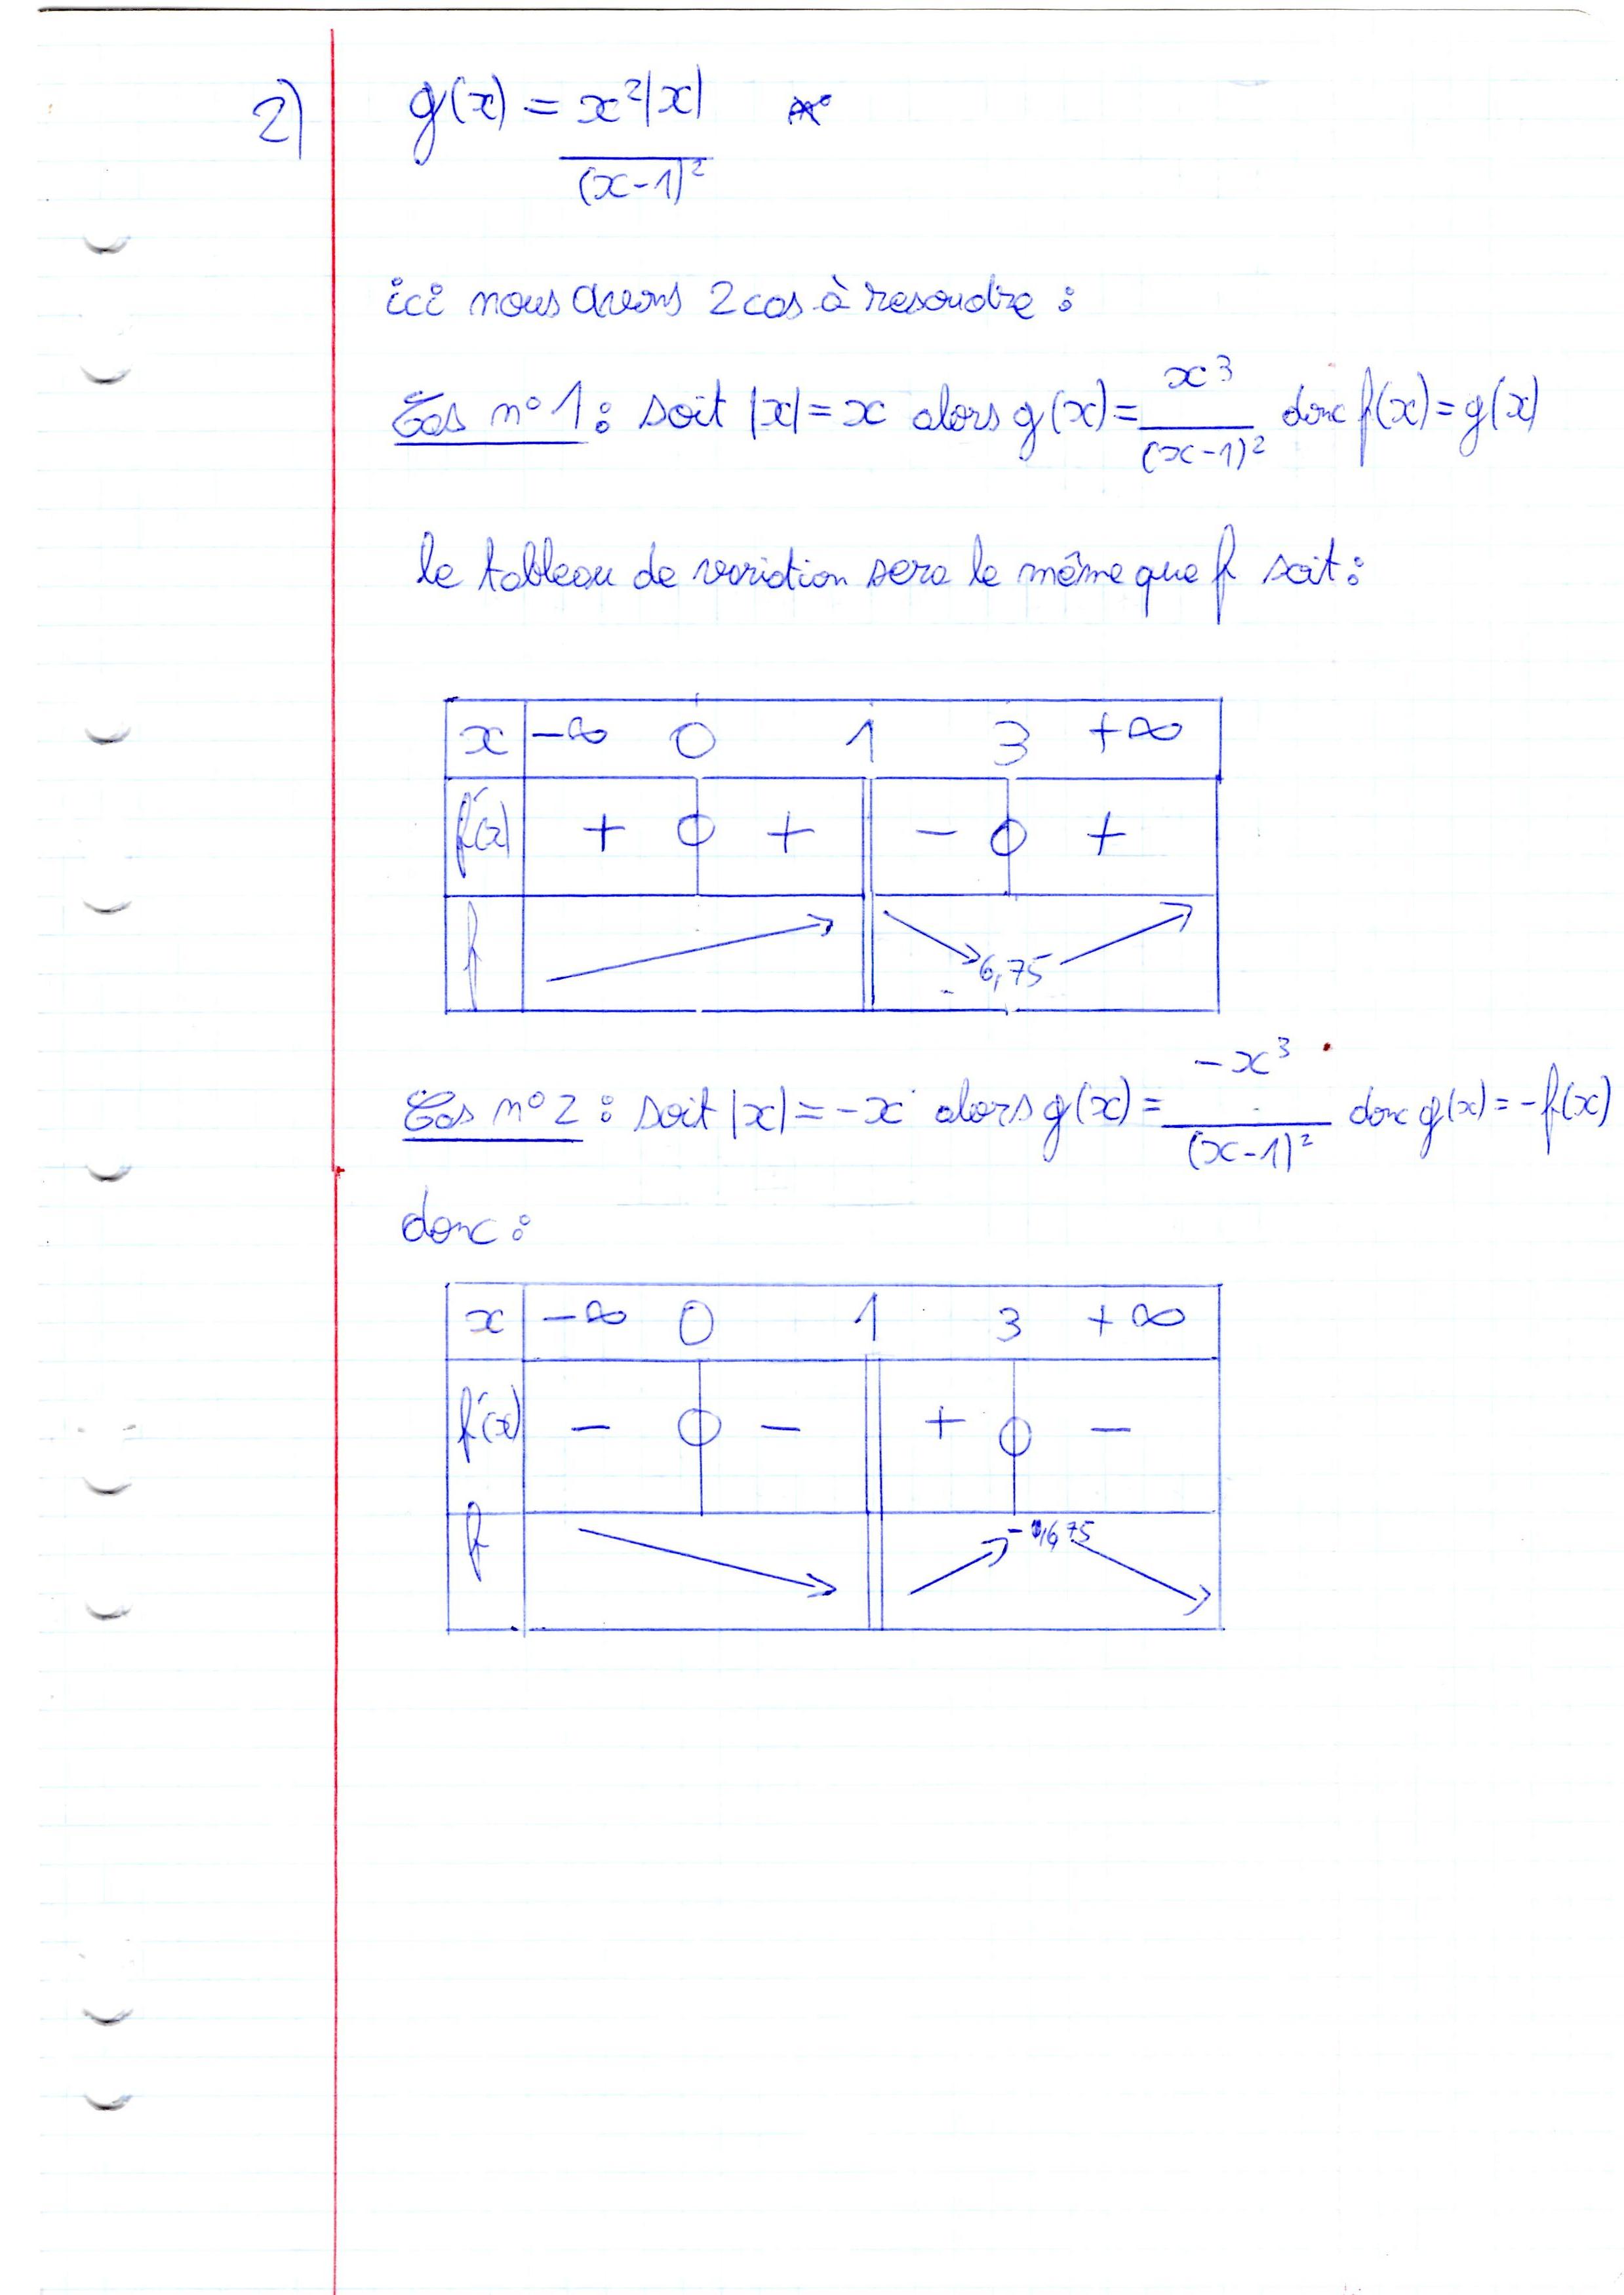 2) g(x) = x²|x|
(x-1)²
ici nous avons 2 cas à resoudre :
Cas n° 1 : soit |x| = x alors g(x) = x³/(x-1)² donc f(x) = g(x)
le tableau de variation sera le même que f soit :
x -∞ 0 1 3 +∞
f'(x) + 0 + - 0 +
f 6,75
Cas n° 2 : soit |x| = -x alors g(x) = -x³/(x-1)² donc g(x) = -f(x)
donc :
x -∞ 0 1 3 +∞
f'(x) - 0 - + 0 -
f -6,75